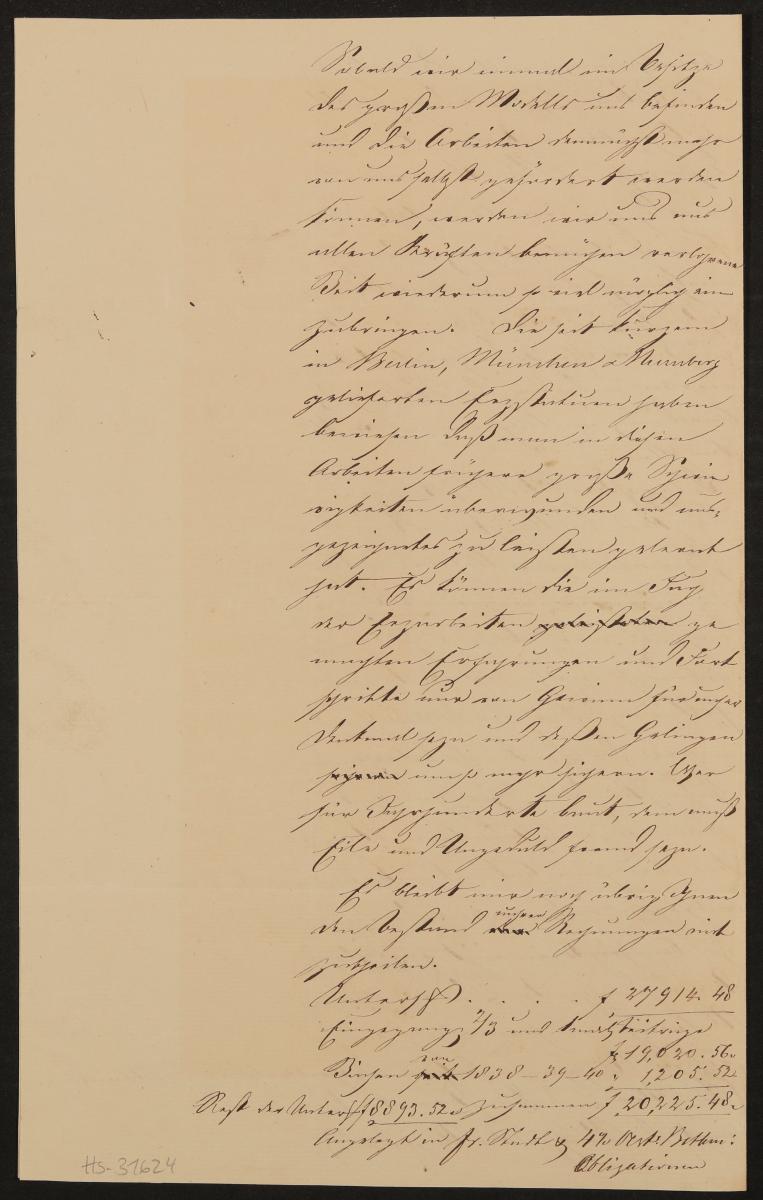 Sobald wir einmal im Besitze
des großen Modells uns befinden
und die Arbeiten demnächst mehr
von uns selbst gefördert werden
können, werden wir uns aus
allen Kräften bemühen verlohrene
Zeit wiederum so viel möglich ein
zubringen. Die seit Kurzem
in Berlin, München & Nürnberg
gelieferten Erzstatuen haben
bewiesen daß man in diesen
Arbeiten frühere große Schwie
rigkeiten überwunden und aus-
gezeichnetes zu leisten gelernt
hat. Es können die im Fach
der Erzarbeiten ge
machten Erfahrungen und Fort
schritte nur von Gewinn für unser
Denkmal seyn und deßen Gelingen
um so mehr sichern. Wer
für Jahrhunderte baut, dem muß
Eile und Ungeduld fremd seyn.
Es bleibt mir noch übrig Ihnen
den Bestand unserer Rechnungen mit
zutheilen.
Unterschft . . . . f 27914. 48
Eingegang. 2/3 und Beiträge
f 19,020. 56
Zinsen von 1838-39-40 " 1,205. 52
Rest der Untersch f 8893. 52 zusammen f 20,225. 48
Angelegt in fr. Stadt & 4% Oestr Bethm:
Obligationen
Hs-31624